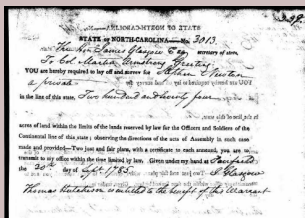 STATE OF NORTH-CAROLINA No. 3013
The Hon James Glasgow Esq secretary of state,
To Col Martin Armstrong Greeting
YOU are hereby required to lay off and survey for
a private
in the line of this state, Two hundred and seventy four
acres of land within the limits of the lands reserved by law for the Officers and Soldiers of the
Continental line of this state; observing the directions of the acts of Assembly in such case
made and provided—Two just and fair plats, with a certificate to each annexed, you are to
transmit to my office within the time limited by law. Given under my hand at Fairfield
the 20th day of Sept 1785. J Glasgow
Thomas Hutchison is entitled to the benefit of this Warrant